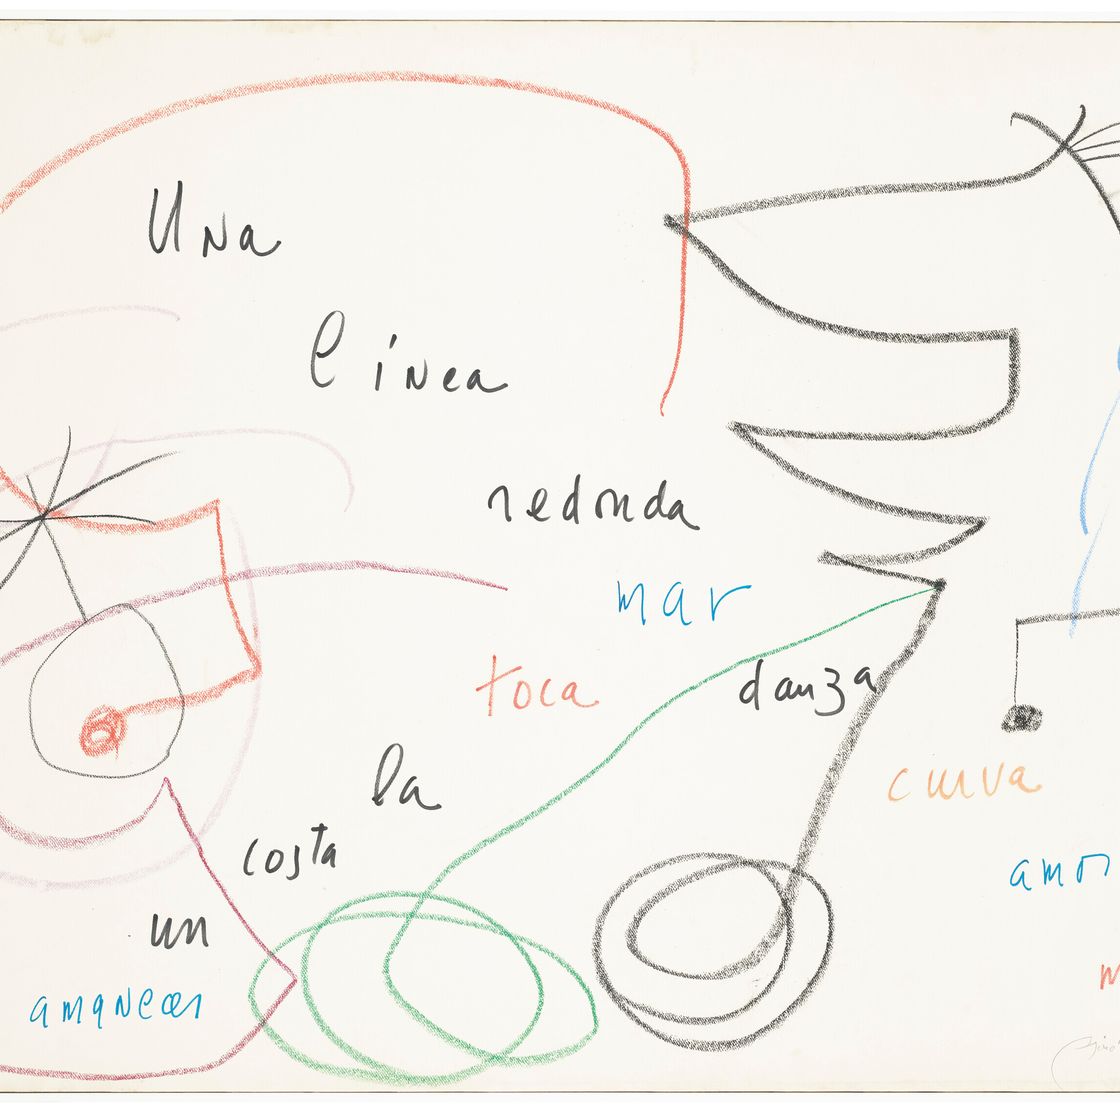 Una
línea
redonda
mar
toca
danza
la
curva
costa
amor
un
amanecer